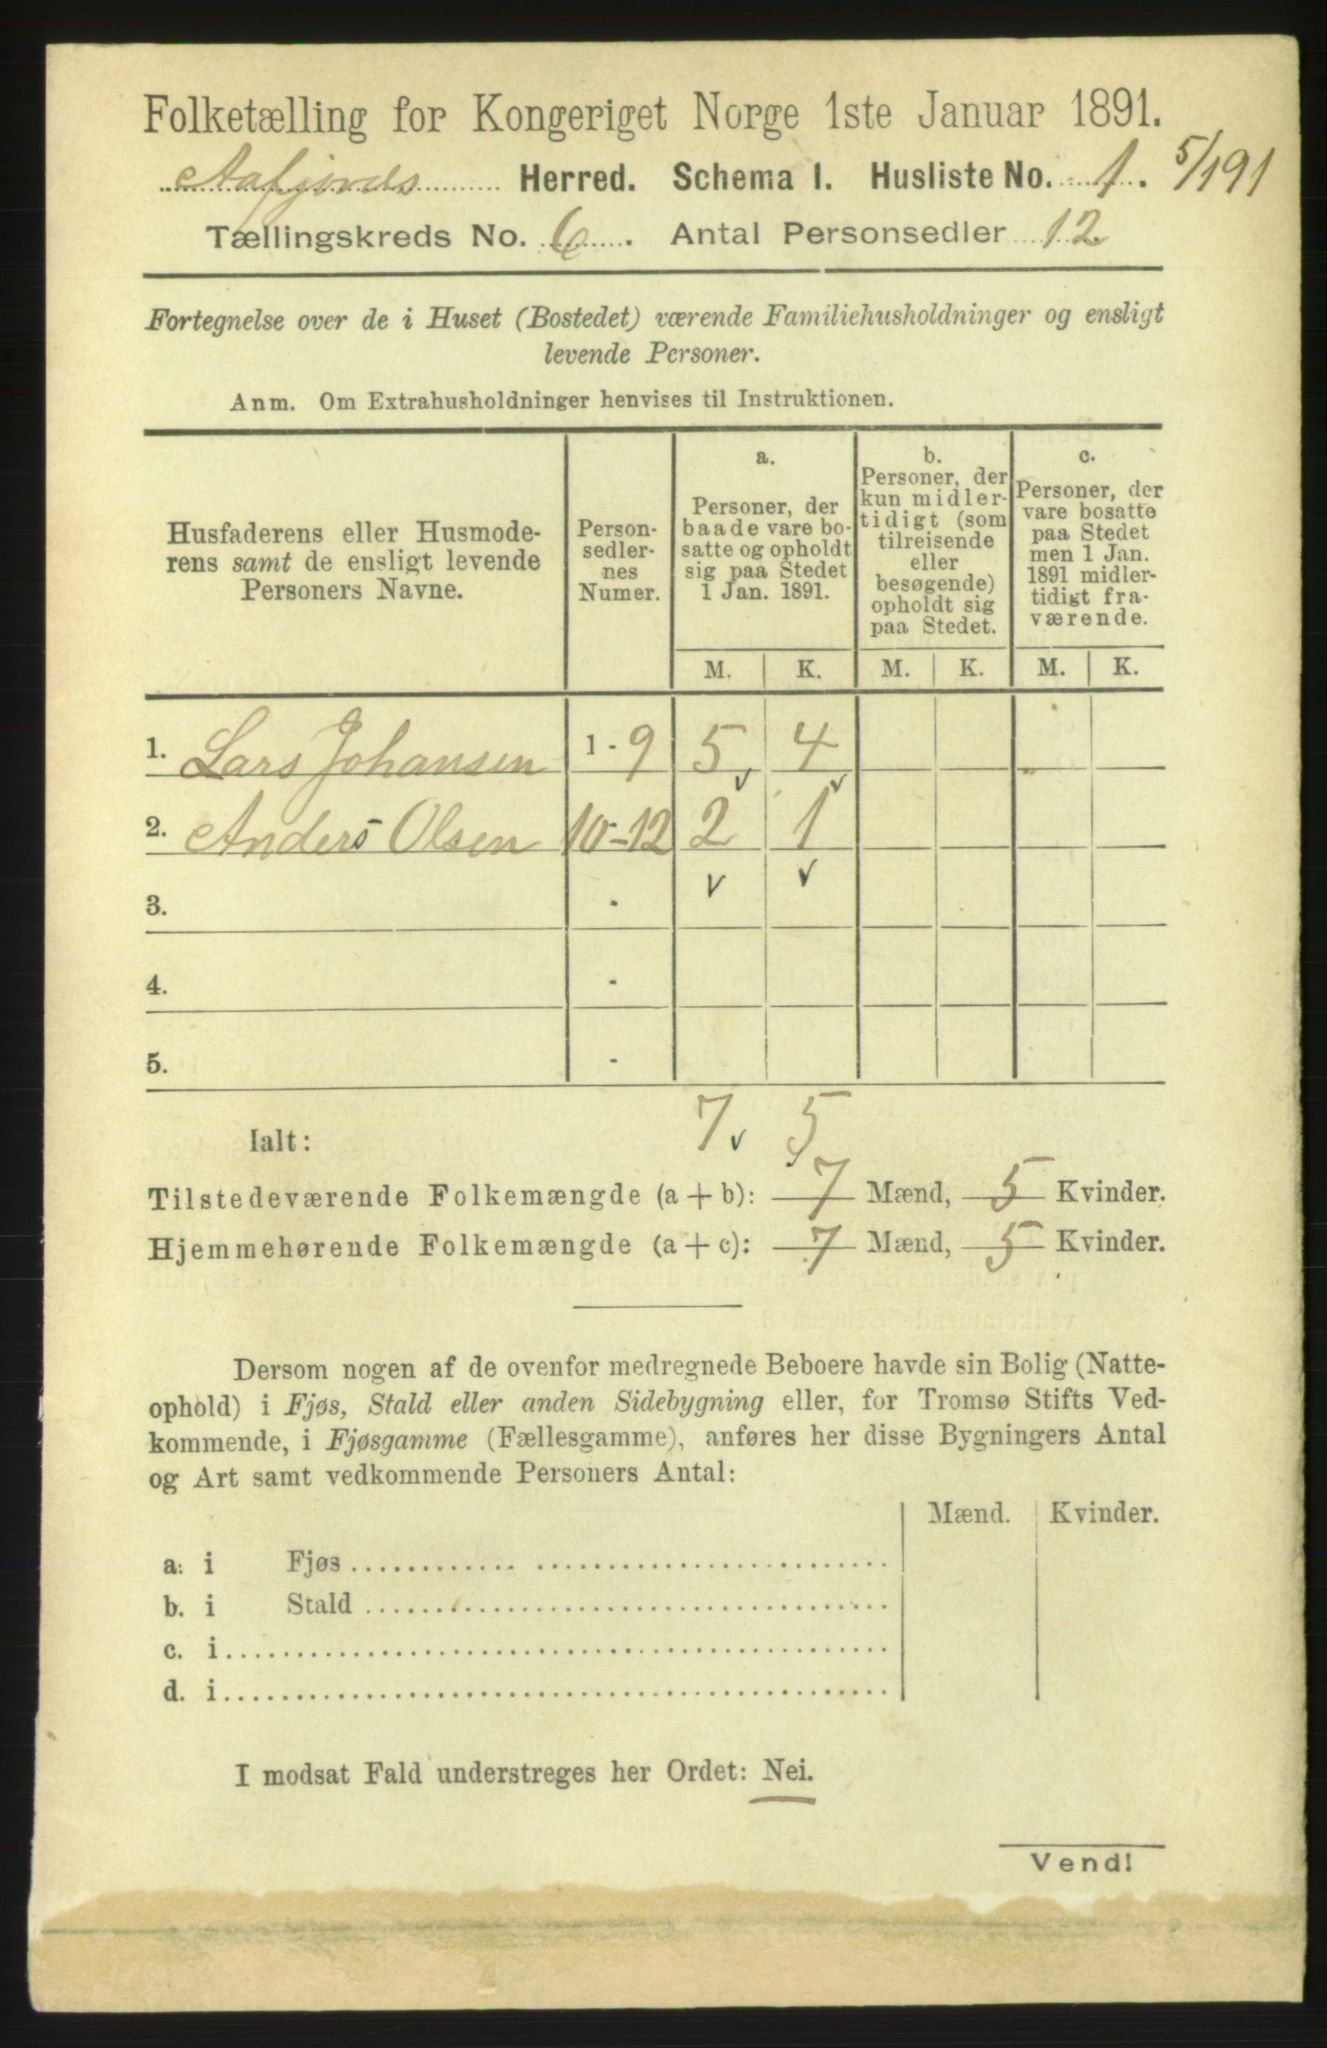 Folketælling for Kongeriget Norge 1ste Januar 1891.
Aafjords Herred. Schema I. Husliste No. 1. 5/191
Tællingskreds No. 6. Antal Personsedler 12
Fortegnelse over de i Huset (Bostedet) værende Familiehusholdninger og ensligt
levende Personer.
Anm. Om Extrahusholdninger henvises til Instruktionen.
Husfaderens eller Husmode-
rens samt de ensligt levende
Personers Navne.
Person-
sedler-
nes
Numer.
a.
Personer, der
baade vare bo-
satte og opholdt
sig paa Stedet
1 Jan. 1891.
b.
Personer, der
kun midler-
tidigt (som
tilreisende
eller
besøgende)
opholdt sig
paa Stedet.
c.
Personer, der
vare bosatte
paa Stedet
men 1 Jan.
1891 midler-
tidigt fra-
værende.
M. K. M. K. M. K.
1. Lars Johansen 1-9 5 4
2. Anders Olsen 10-12 2 1
3. -
4. -
5. -
Ialt: 7 5
Tilstedeværende Folkemængde (a+b): 7 Mænd, 5 Kvinder.
Hjemmehørende Folkemængde (a+c): 7 Mænd, 5 Kvinder.
Dersom nogen af de ovenfor medregnede Beboere havde sin Bolig (Natte-
ophold) i Fjøs, Stald eller anden Sidebygning eller, for Tromsø Stifts Ved-
kommende, i Fjøsgamme (Fællesgamme), anføres her disse Bygningers Antal
og Art samt vedkommende Personers Antal:
Mænd. Kvinder.
a. i Fjøs
b. i Stald
c. i
d. i
I modsat Fald understreges her Ordet: Nei.
Vend!